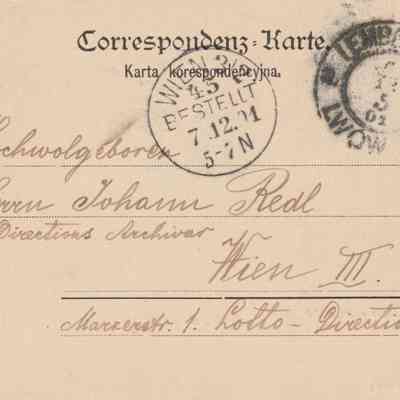 Correspondenz-Karte.
Karta korespondencyjna.
WIEN 3/2
43
BESTELLT
7.12.01
5-7N
LEMBE
LWÓW
chwolgeboren
errn Johann Redl
Directions Archivar
Wien III.
Marxerstr. 1. Lotto-Directio